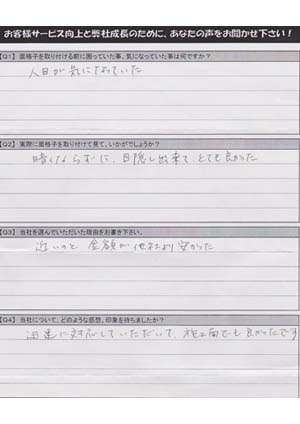 お客様サービス向上と弊社成長のために、あなたの声をお聞かせ下さい！
【Q1】面格子を取り付ける前に困っていた事、気になっていた事は何ですか？
人目が気になっていた
【Q2】実際に面格子を取り付けて見て、いかがでしょうか？
暗くならずに、目隠し出来て、とても良かった
【Q3】当社を選んでいただいた理由をお書き下さい。
近いのと金額が他社より安かった
【Q4】当社について、どのような感想、印象を持ちましたか？
迅速に対応していただいて、施工面でも良かったです